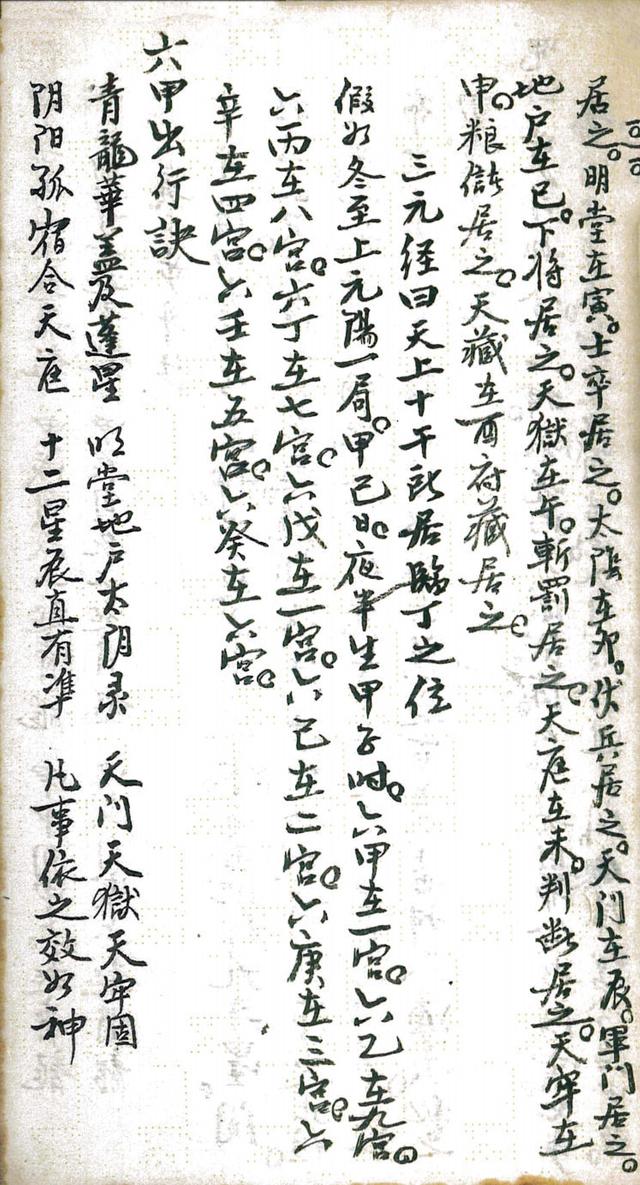 居之。明堂在寅。士卒居之。太陰在卯。伏兵居之。天门在辰。軍门居之。
地户在巳。下将居之。天獄在午。斬罰居之。天庭在未。判断居之。天牢在
申。粮储居之。天藏在酉府藏居之。
三元经曰天上十干所居臨丁之位
假如冬至上元陽一局。甲己日。夜半生甲子时。六甲在一宫。六乙在九宫。
六丙在八宫。六丁在七宫。六戊在一宫。六己在二宫。六庚在三宫。六
辛在四宫。六壬在五宫。六癸在六宫。
六甲出行訣
青龍華盖及蓬星 明堂地户太阴灵 天门天獄天牢固
阴阳孤宿合天庭 十二星辰直有準 凡事依之效如神